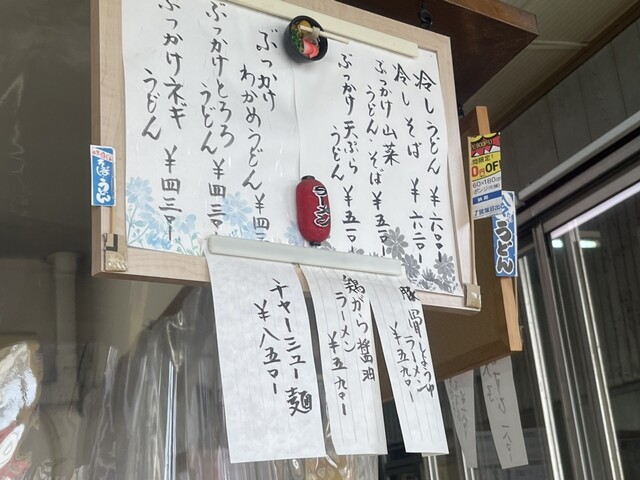 冷しうどん ¥六〇〇ー
冷しそば ¥六二〇ー
ぶっかけ山菜
うどん・そば ¥五一〇ー
ぶっかけ天ぷら
うどん ¥五一〇ー
ぶっかけ
わかめうどん ¥四三
ぶっかけとろろ
うどん ¥四三〇ー
ぶっかけネギ
うどん ¥四三〇ー
ラーメン
豚骨しょうゆ
ラーメン
¥五九〇ー
鶏がら醤油
ラーメン
¥五九〇ー
チャーシュー麺
¥八五〇ー
うどん
うどん
0円OFF
60×180cm